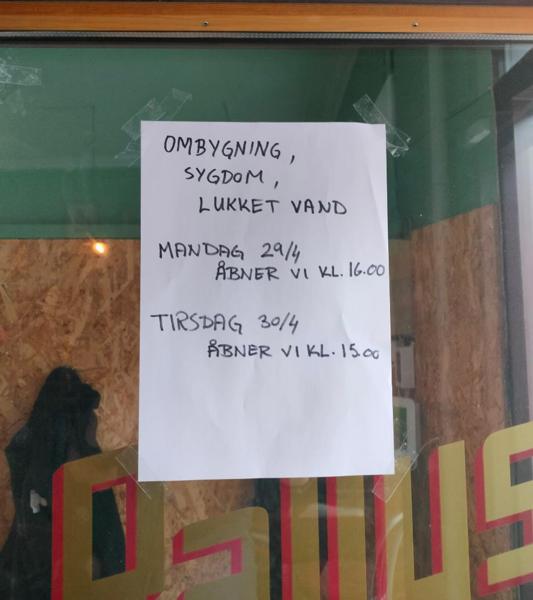 OMBYGNING,
SYGDOM,
LUKKET VAND
MANDAG 29/4
ÅBNER VI KL. 16.00
TIRSDAG 30/4
ÅBNER VI KL. 15.00